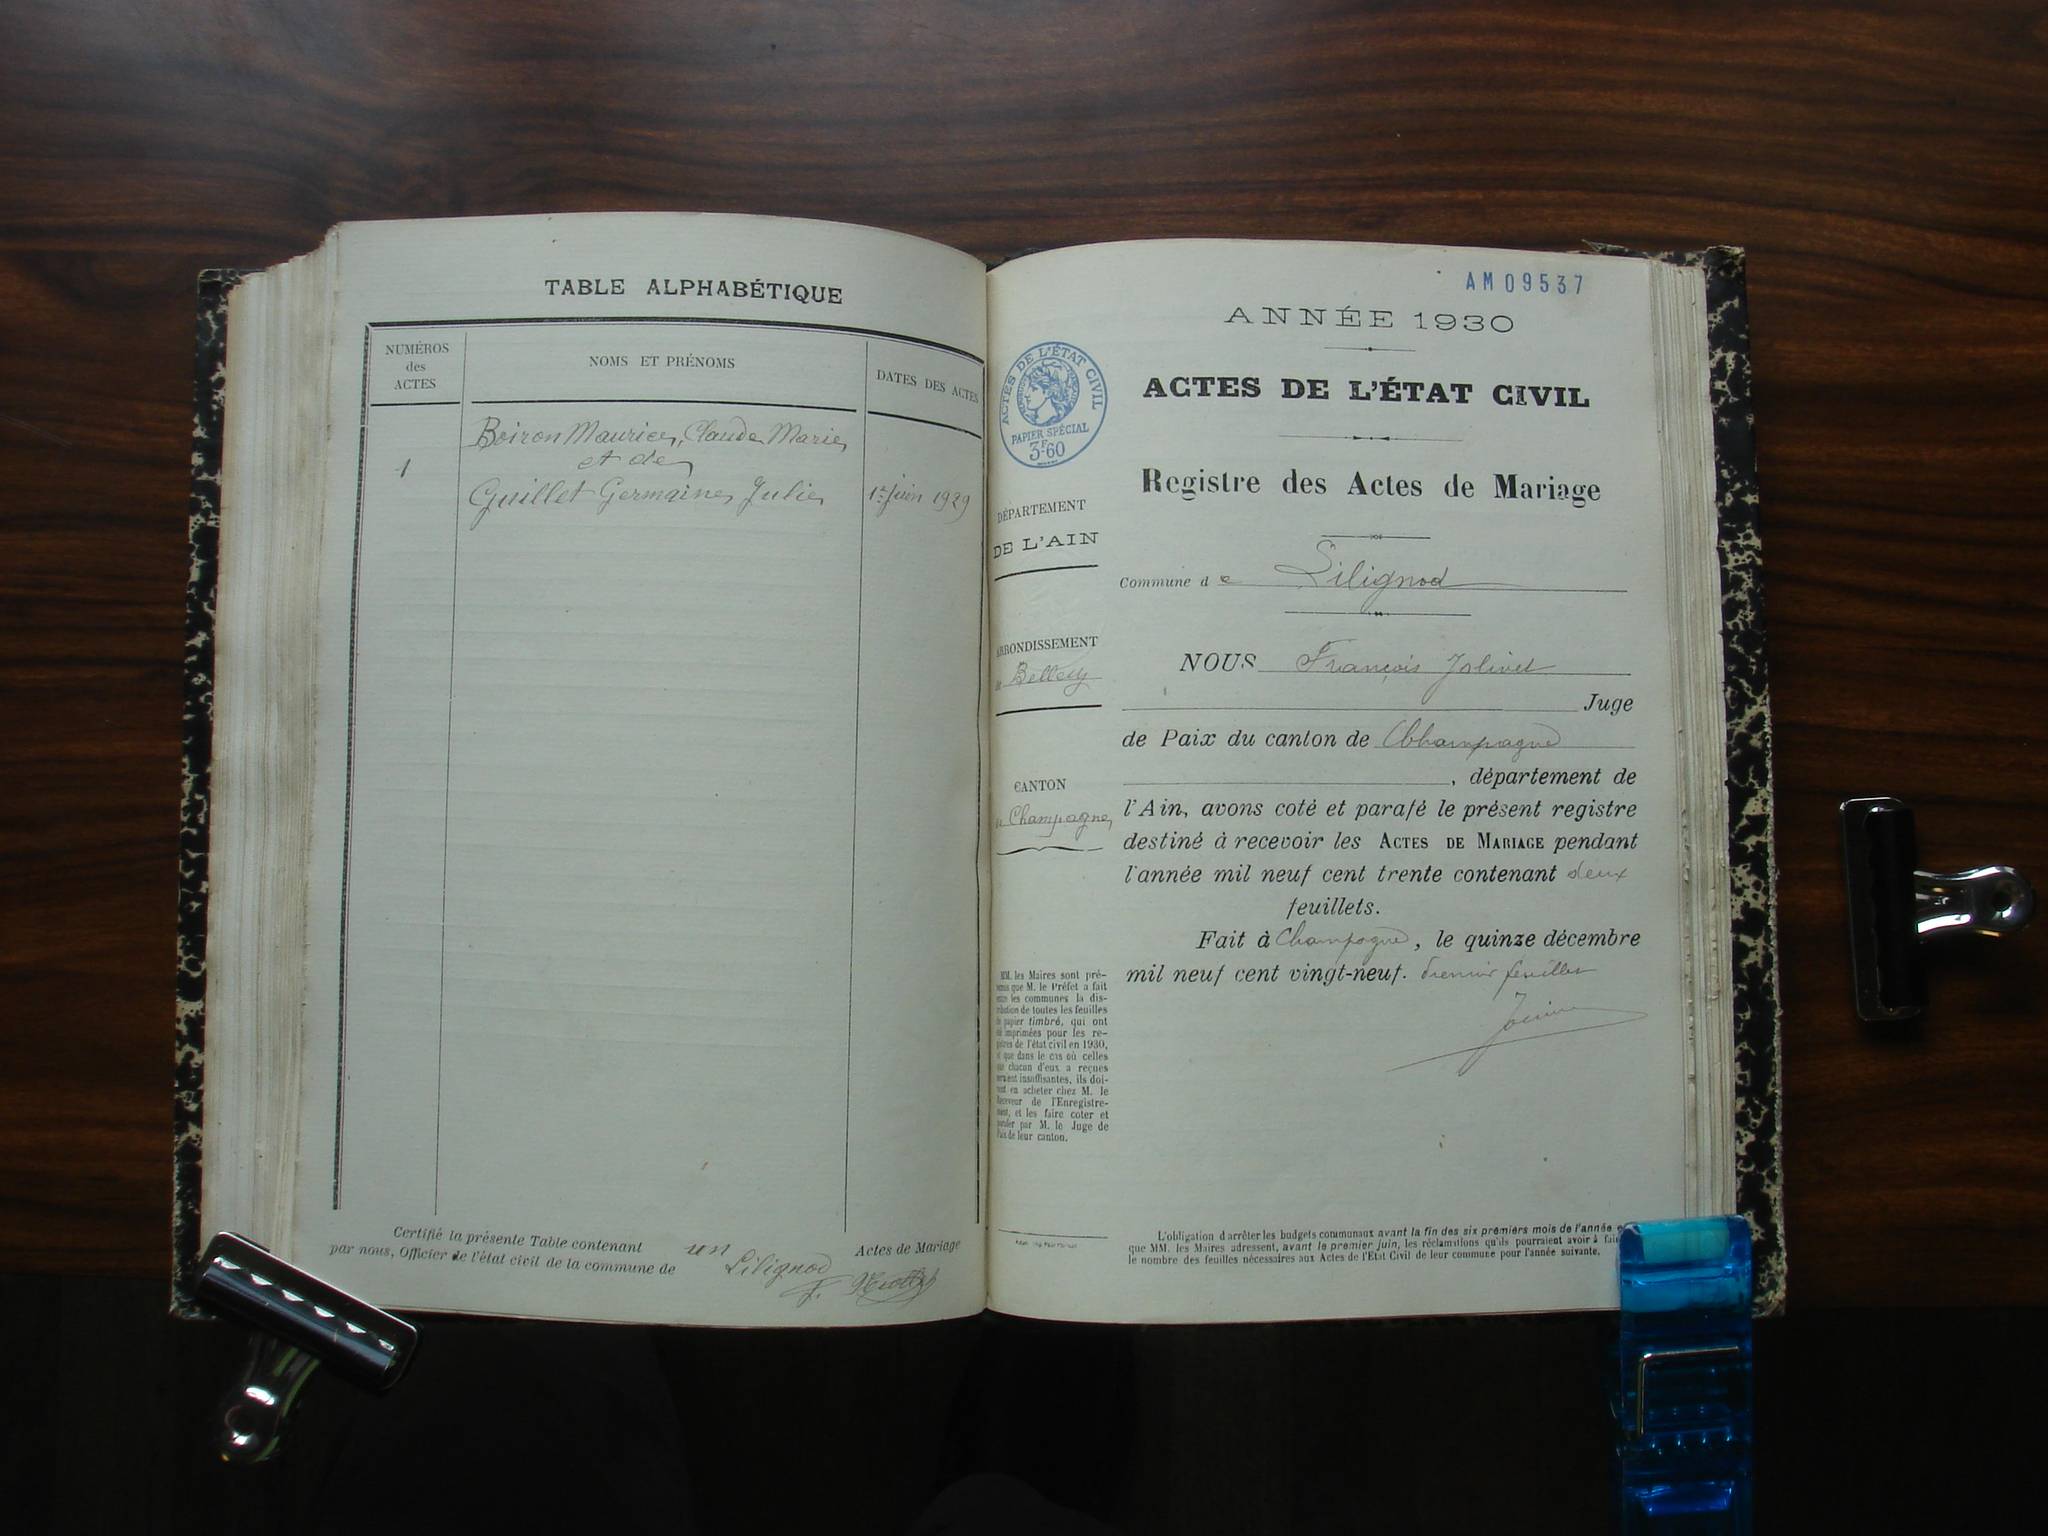 TABLE ALPHABÉTIQUE
NUMÉROS
des
ACTES
NOMS ET PRÉNOMS
DATES DES ACTES
Boiron Maurice, Claude Marie
et de
1
Guillet Germaine Julie
1er juin 1929
Certifié la présente Table contenant un Actes de Mariage
par nous, Officier de l'état civil de la commune de Lilignod
AM09537
ANNÉE 1930
ACTES DE L'ÉTAT CIVIL
PAPIER SPÉCIAL
3F.60
ACTES DE L'ÉTAT CIVIL
Registre des Actes de Mariage
DÉPARTEMENT
DE L'AIN
Commune de Lilignod
ARRONDISSEMENT
de Belley
CANTON
de Champagne
NOUS François Jolivet
Juge
de Paix du canton de Champagne
, département de
l'Ain, avons coté et parafé le présent registre
destiné à recevoir les ACTES DE MARIAGE pendant
l'année mil neuf cent trente contenant deux
feuillets.
Fait à Champagne, le quinze décembre
mil neuf cent vingt-neuf. Premier feuillet
MM. les Maires sont pré-
venus que M. le Préfet a fait
entre les communes la dis-
tribution de toutes les feuilles
de papier timbré, qui ont
été imprimées pour les re-
gistres de l'état civil en 1930,
et que dans le cas où celles
que chacun d'eux a reçues
seraient insuffisantes, ils doi-
vent en acheter chez M. le
Receveur de l'Enregistre-
ment, et les faire coter et
parafer par M. le Juge de
Paix de leur canton.
L'obligation d'arrêter les budgets communaux avant la fin des six premiers mois de l'année
que MM. les Maires adressent, avant le premier juin, les réclamations qu'ils pourraient avoir à fai
le nombre des feuilles nécessaires aux Actes de l'Etat Civil de leur commune pour l'année suivante.